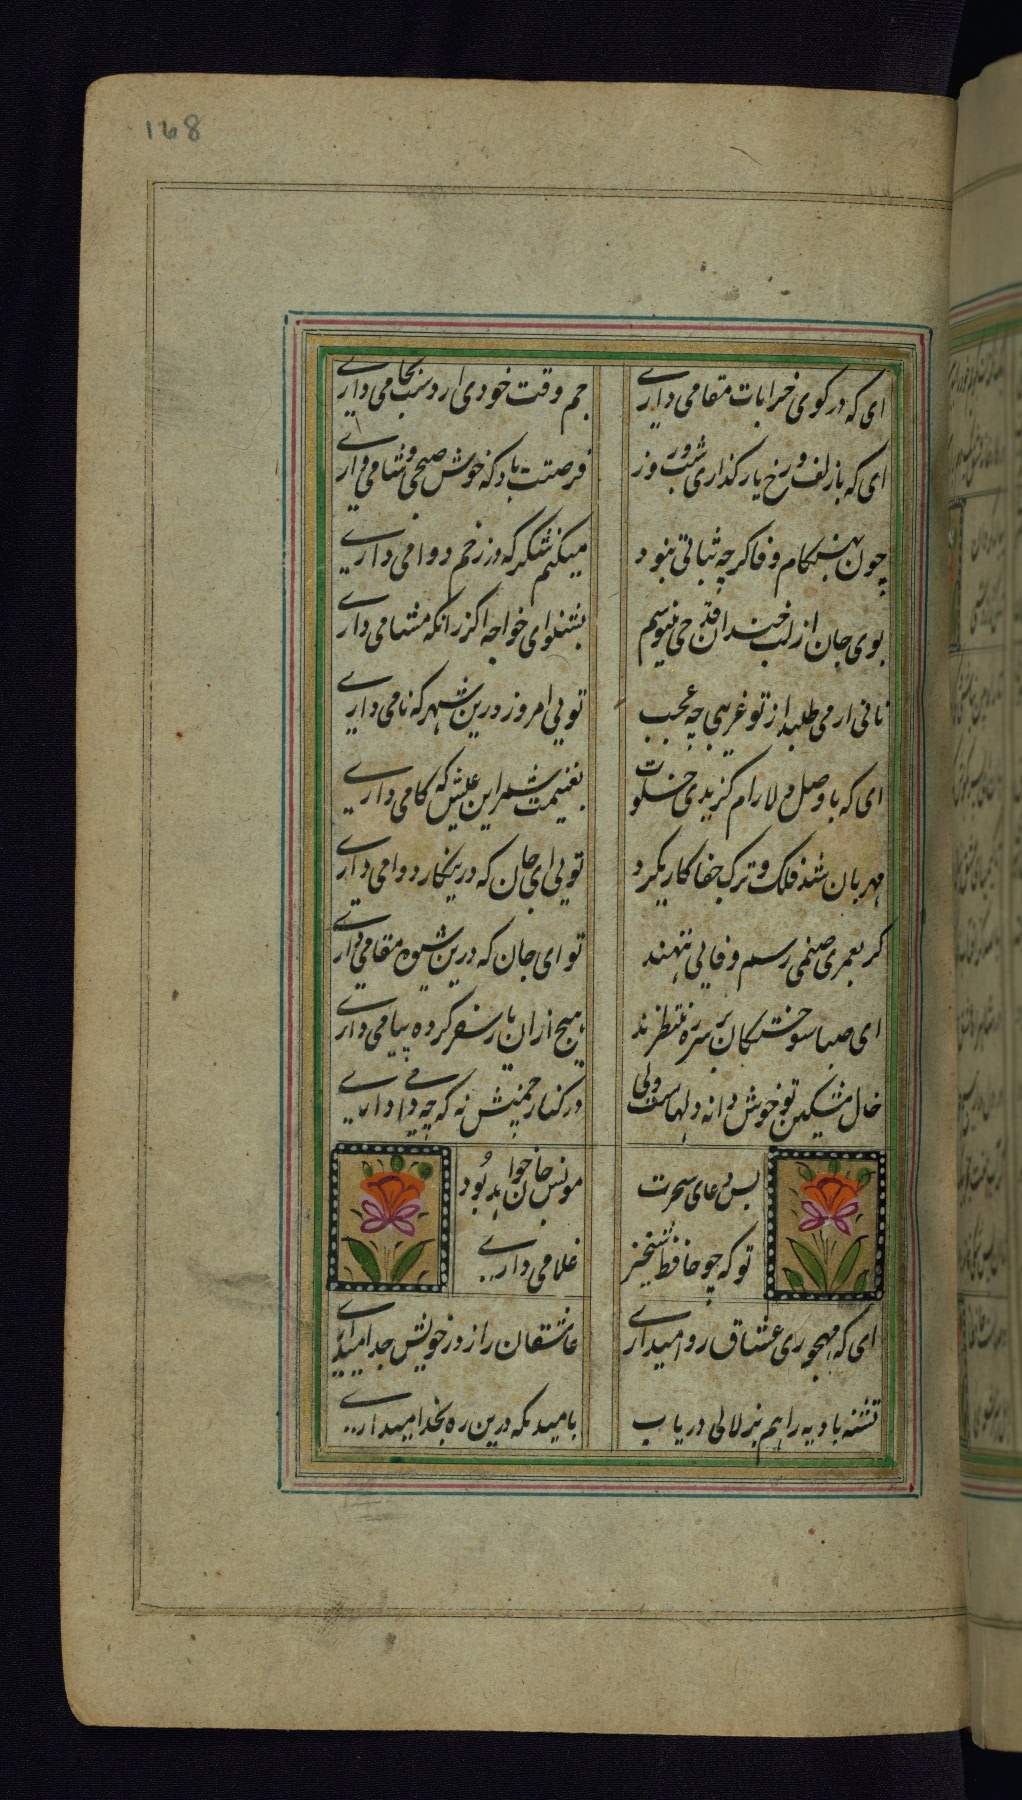 168
ای که در کوی خرابات مقامی داری
جم وقت خودی ار دست بجامی داری
ای که با زلف و رخ یار گذاری شب و روز
فرصتت باد که خوش صبحی و شامی داری
چون بهنگام وفا گرچه ثباتی نبود
میکنم شکر که در زخم دوامی داری
بوی جان از لب خندان قدح می نیوسم
بشنو ای خواجه اگر زانکه مشامی داری
نانی ار می طلبد از تو غریبی چه عجب
تویی امروز درین شهر که نامی داری
ای که با وصل دلارام گزیدی خلوت
بغنیمت شمر این عیش که کامی داری
مهربان شد فلک و ترک جفا کاری کرد
تویی ای جان که درینکار دوامی داری
گر بعمری صنمی رسم وفایی ننهند
تو ای جان که درین شیوه مقامی داری
ای صبا سوختگان بر سر ره منتظرند
هیچ از ان یار سفر کرده پیامی داری
خال مشکین تو خوش دانه دلهاست ولی
در کنار چمنش نه که چه دامی داری
بس دعای سحرت
مونس جان خواهد بود
تو که چو حافظ شبخیز
غلامی داری
ای که مهجوری عشاق روا میداری
عاشقان را ز در خویش جدا میداری
تشنه بادیه را هم بزلالی دریاب
بامیدیکه درین ره بخدا میداری